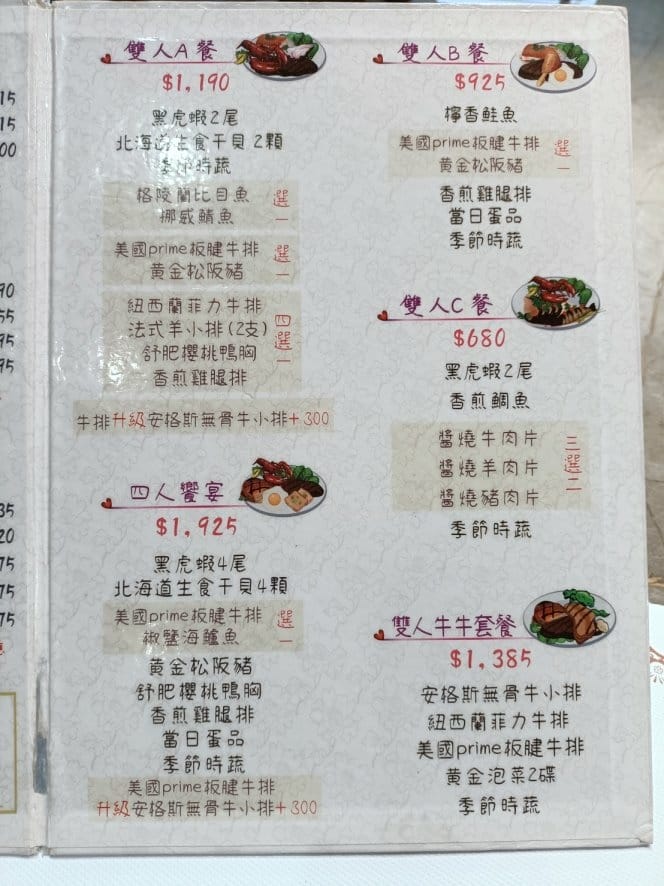 雙人A餐
$1,190
黑虎蝦2尾
北海道生食干貝2顆
季節時蔬
格陵蘭比目魚
挪威鯖魚
選一
美國prime板腱牛排
黃金松阪豬
選一
紐西蘭菲力牛排
法式羊小排(2支)
舒肥櫻桃鴨胸
香煎雞腿排
四選一
牛排升級安格斯無骨牛小排+300
四人饗宴
$1,925
黑虎蝦4尾
北海道生食干貝4顆
美國prime板腱牛排
椒鹽海鱸魚
選一
黃金松阪豬
舒肥櫻桃鴨胸
香煎雞腿排
當日蛋品
季節時蔬
美國prime板腱牛排
升級安格斯無骨牛小排+300
雙人B餐
$925
檸香鮭魚
美國prime板腱牛排
黃金松阪豬
選一
香煎雞腿排
當日蛋品
季節時蔬
雙人C餐
$680
黑虎蝦2尾
香煎鯛魚
醬燒牛肉片
醬燒羊肉片
醬燒豬肉片
三選二
季節時蔬
雙人牛牛套餐
$1,385
安格斯無骨牛小排
紐西蘭菲力牛排
美國prime板腱牛排
黃金泡菜2碟
季節時蔬